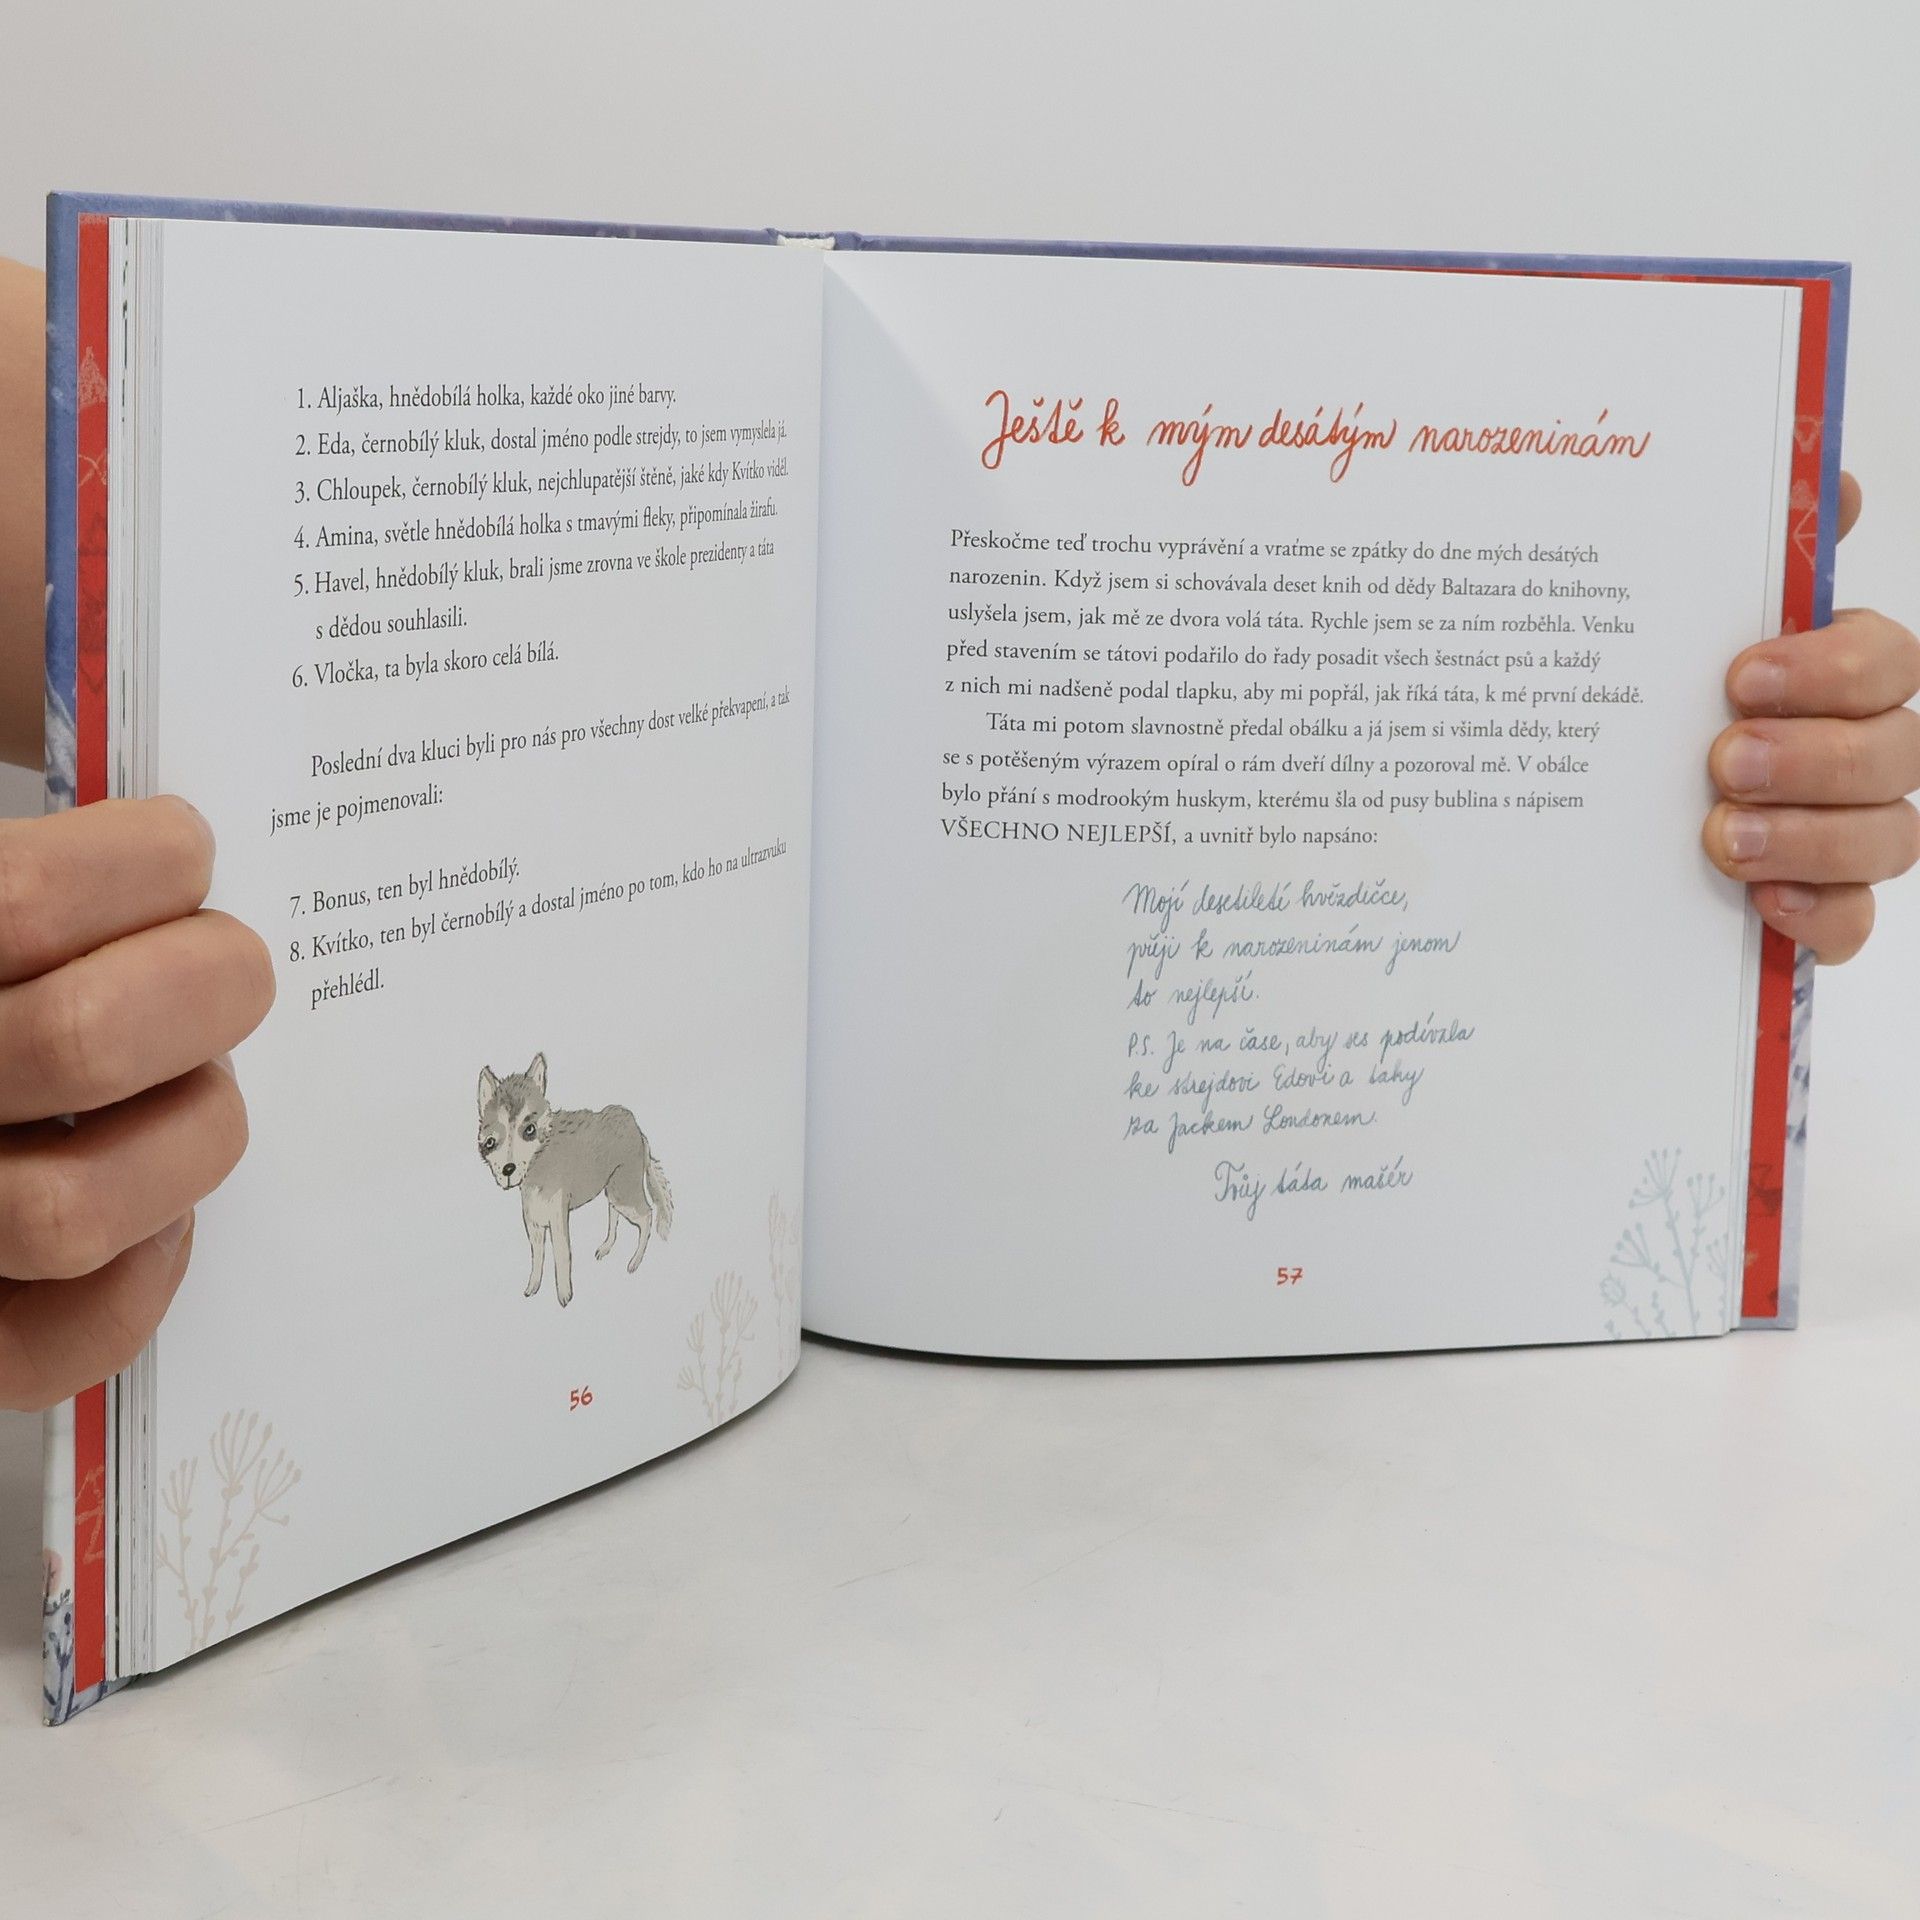 1. Aljaška, hnědobílá holka, každé oko jiné barvy.
2. Eda, černobílý kluk, dostal jméno podle strejdy, to jsem vymyslela já.
3. Chloupek, černobílý kluk, nejchlupatější štěně, jaké kdy Kvítko viděl.
4. Amina, světle hnědobílá holka s tmavými fleky, připomínala žirafu.
5. Havel, hnědobílý kluk, brali jsme zrovna ve škole prezidenty a táta
s dědou souhlasili.
6. Vločka, ta byla skoro celá bílá.
Poslední dva kluci byli pro nás pro všechny dost velké překvapení, a tak
jsme je pojmenovali:
7. Bonus, ten byl hnědobílý.
8. Kvítko, ten byl černobílý a dostal jméno po tom, kdo ho na ultrazvuku
přehlédl.
56
Ještě k mým desátým narozeninám
Přeskočme teď trochu vyprávění a vraťme se zpátky do dne mých desátých
narozenin. Když jsem si schovávala deset knih od dědy Baltazara do knihovny,
uslyšela jsem, jak mě ze dvora volá táta. Rychle jsem se za ním rozběhla. Venku
před stavením se tátovi podařilo do řady posadit všech šestnáct psů a každý
z nich mi nadšeně podal tlapku, aby mi popřál, jak říká táta, k mé první dekádě.
Táta mi potom slavnostně předal obálku a já jsem si všimla dědy, který
se s potěšeným výrazem opíral o rám dveří dílny a pozoroval mě. V obálce
bylo přání s modrookým huskym, kterému šla od pusy bublina s nápisem
VŠECHNO NEJLEPŠÍ, a uvnitř bylo napsáno:
Mojí desetileté hvězdičce,
přeji k narozeninám jenom
to nejlepší.
P.S. Je na čase, aby ses podívala
ke strejdovi Edovi a tahy
za Jackem Londonem.
Tvůj táta mašér
57